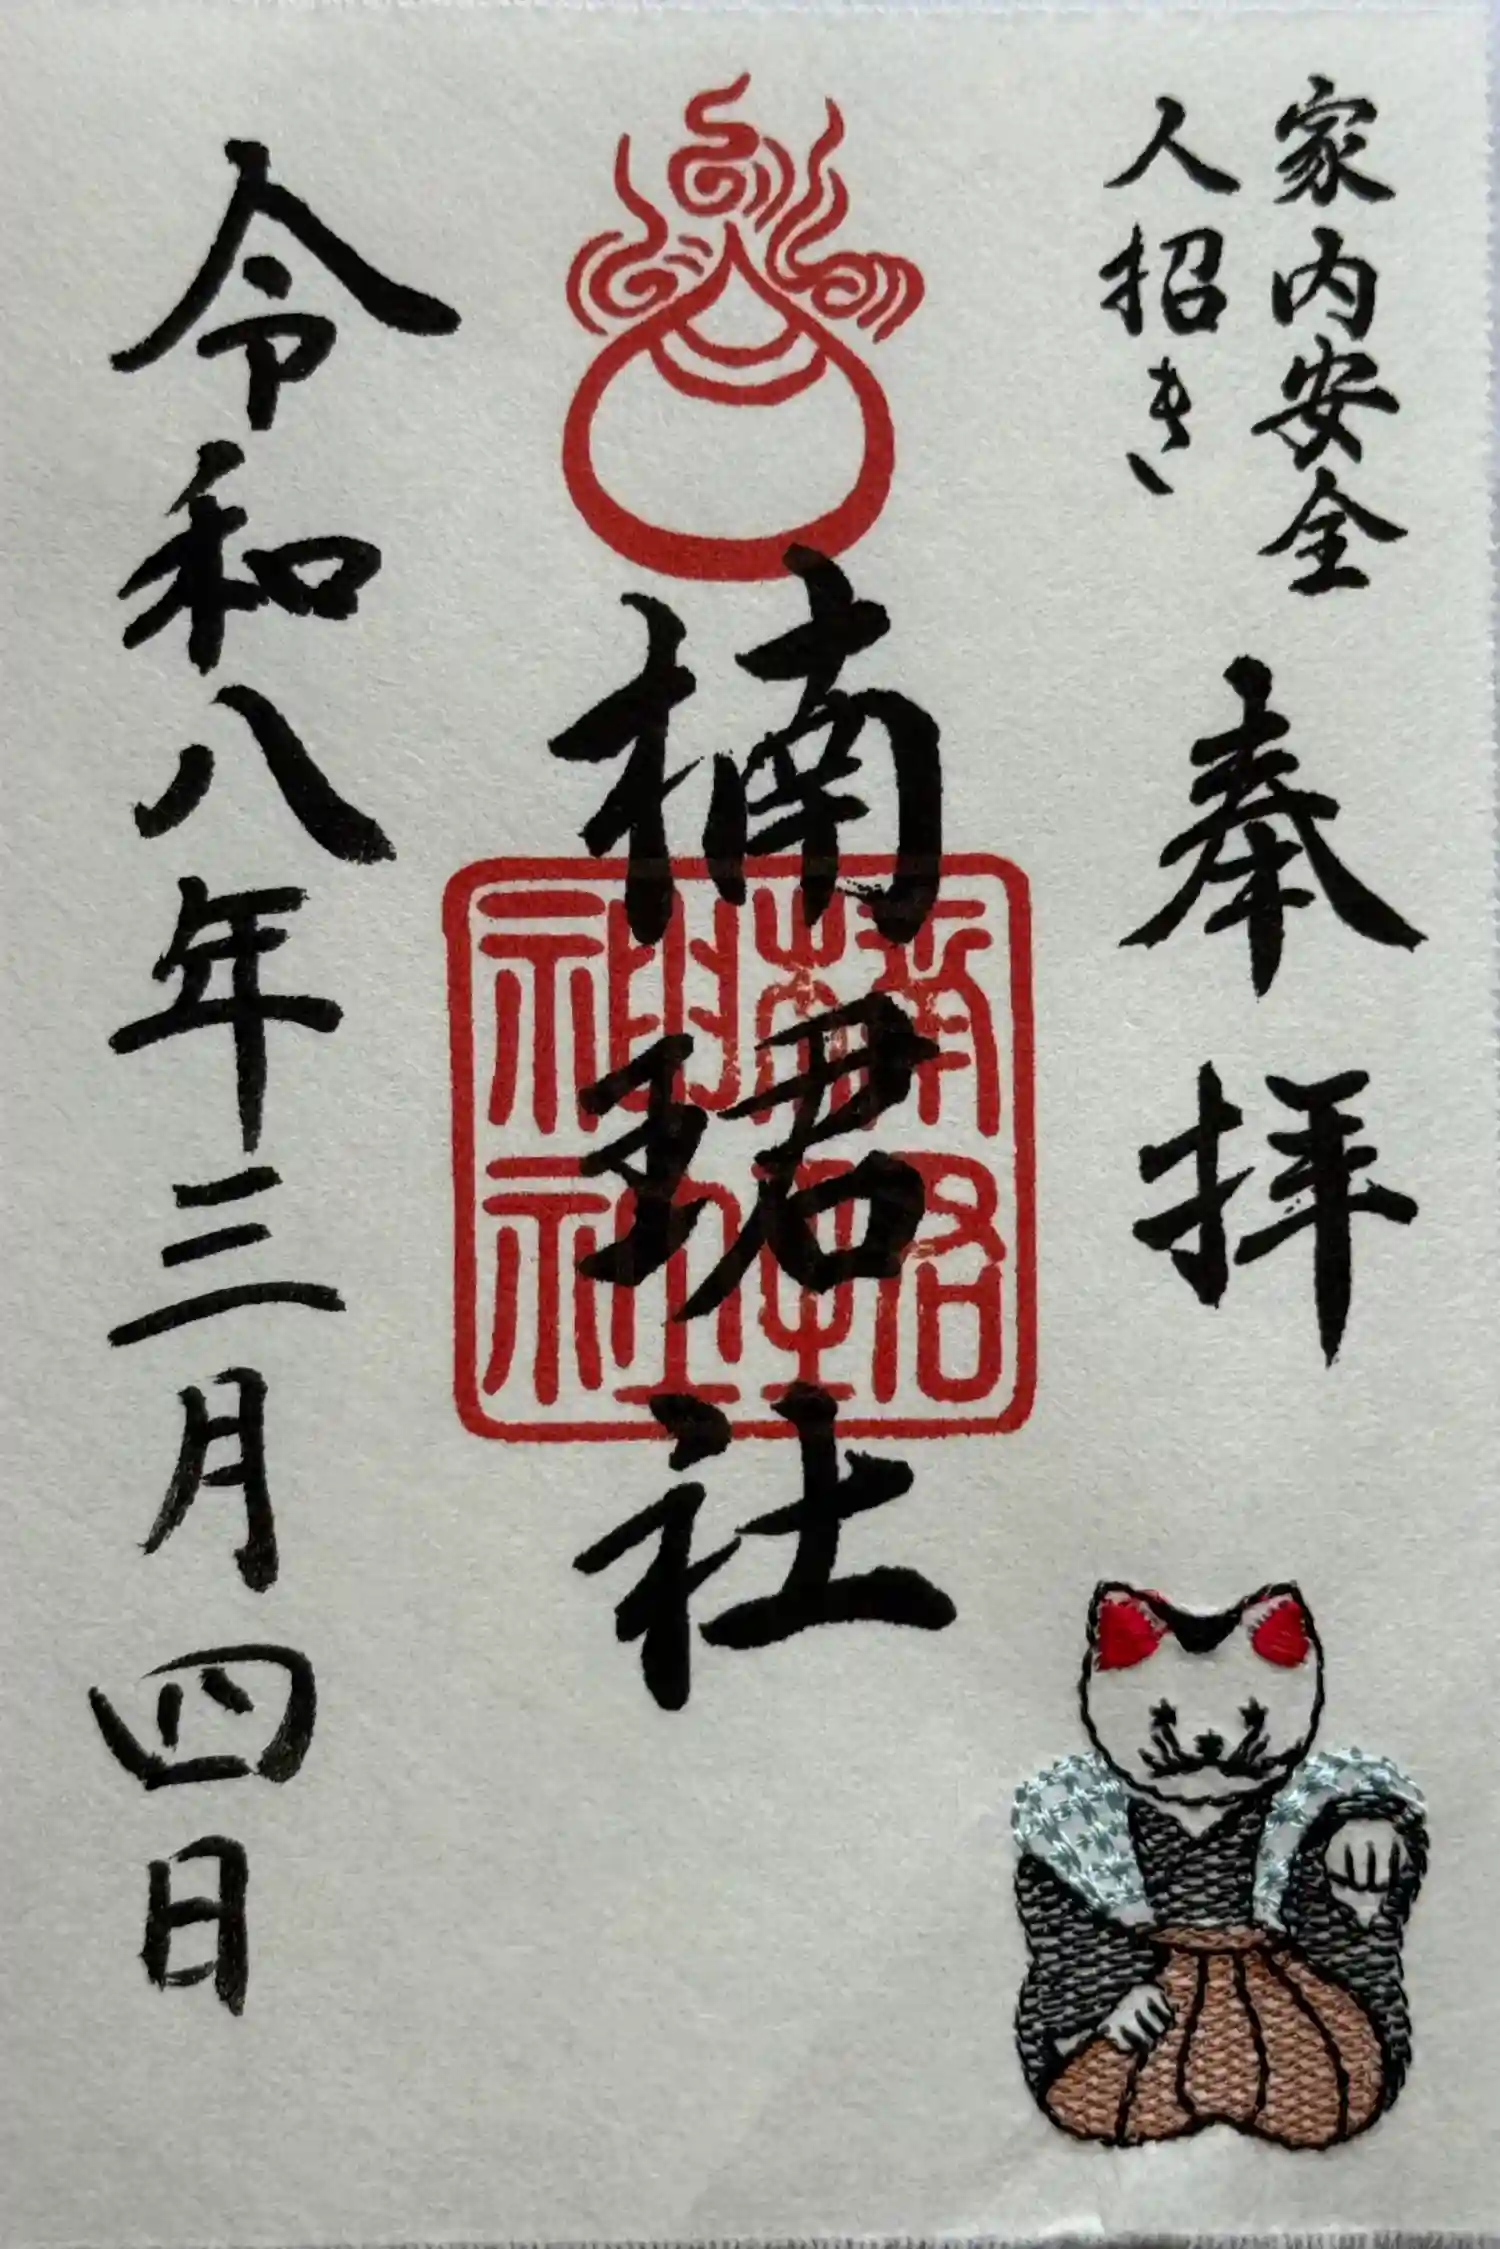 家内安全
人招き
奉拝
楠珺社
楠珺
神社
令和八年三月四日